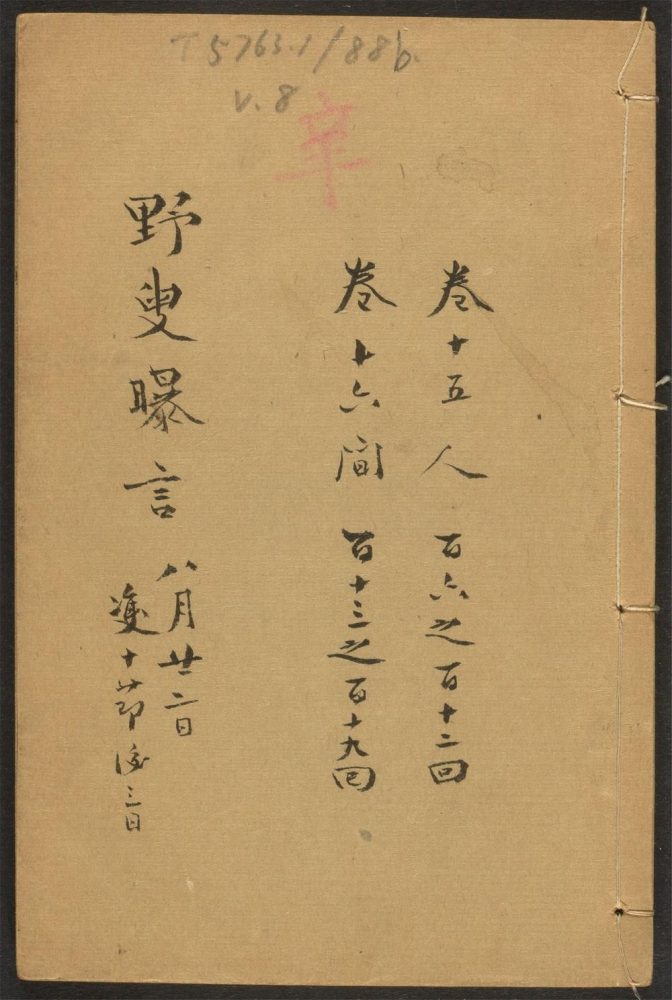 T5763.1/88b.
v.8
辛
卷十五人 百六之百十二回
卷十六間 百十三之百十九回
野叟曝言
八月廿二日
双十節後三日